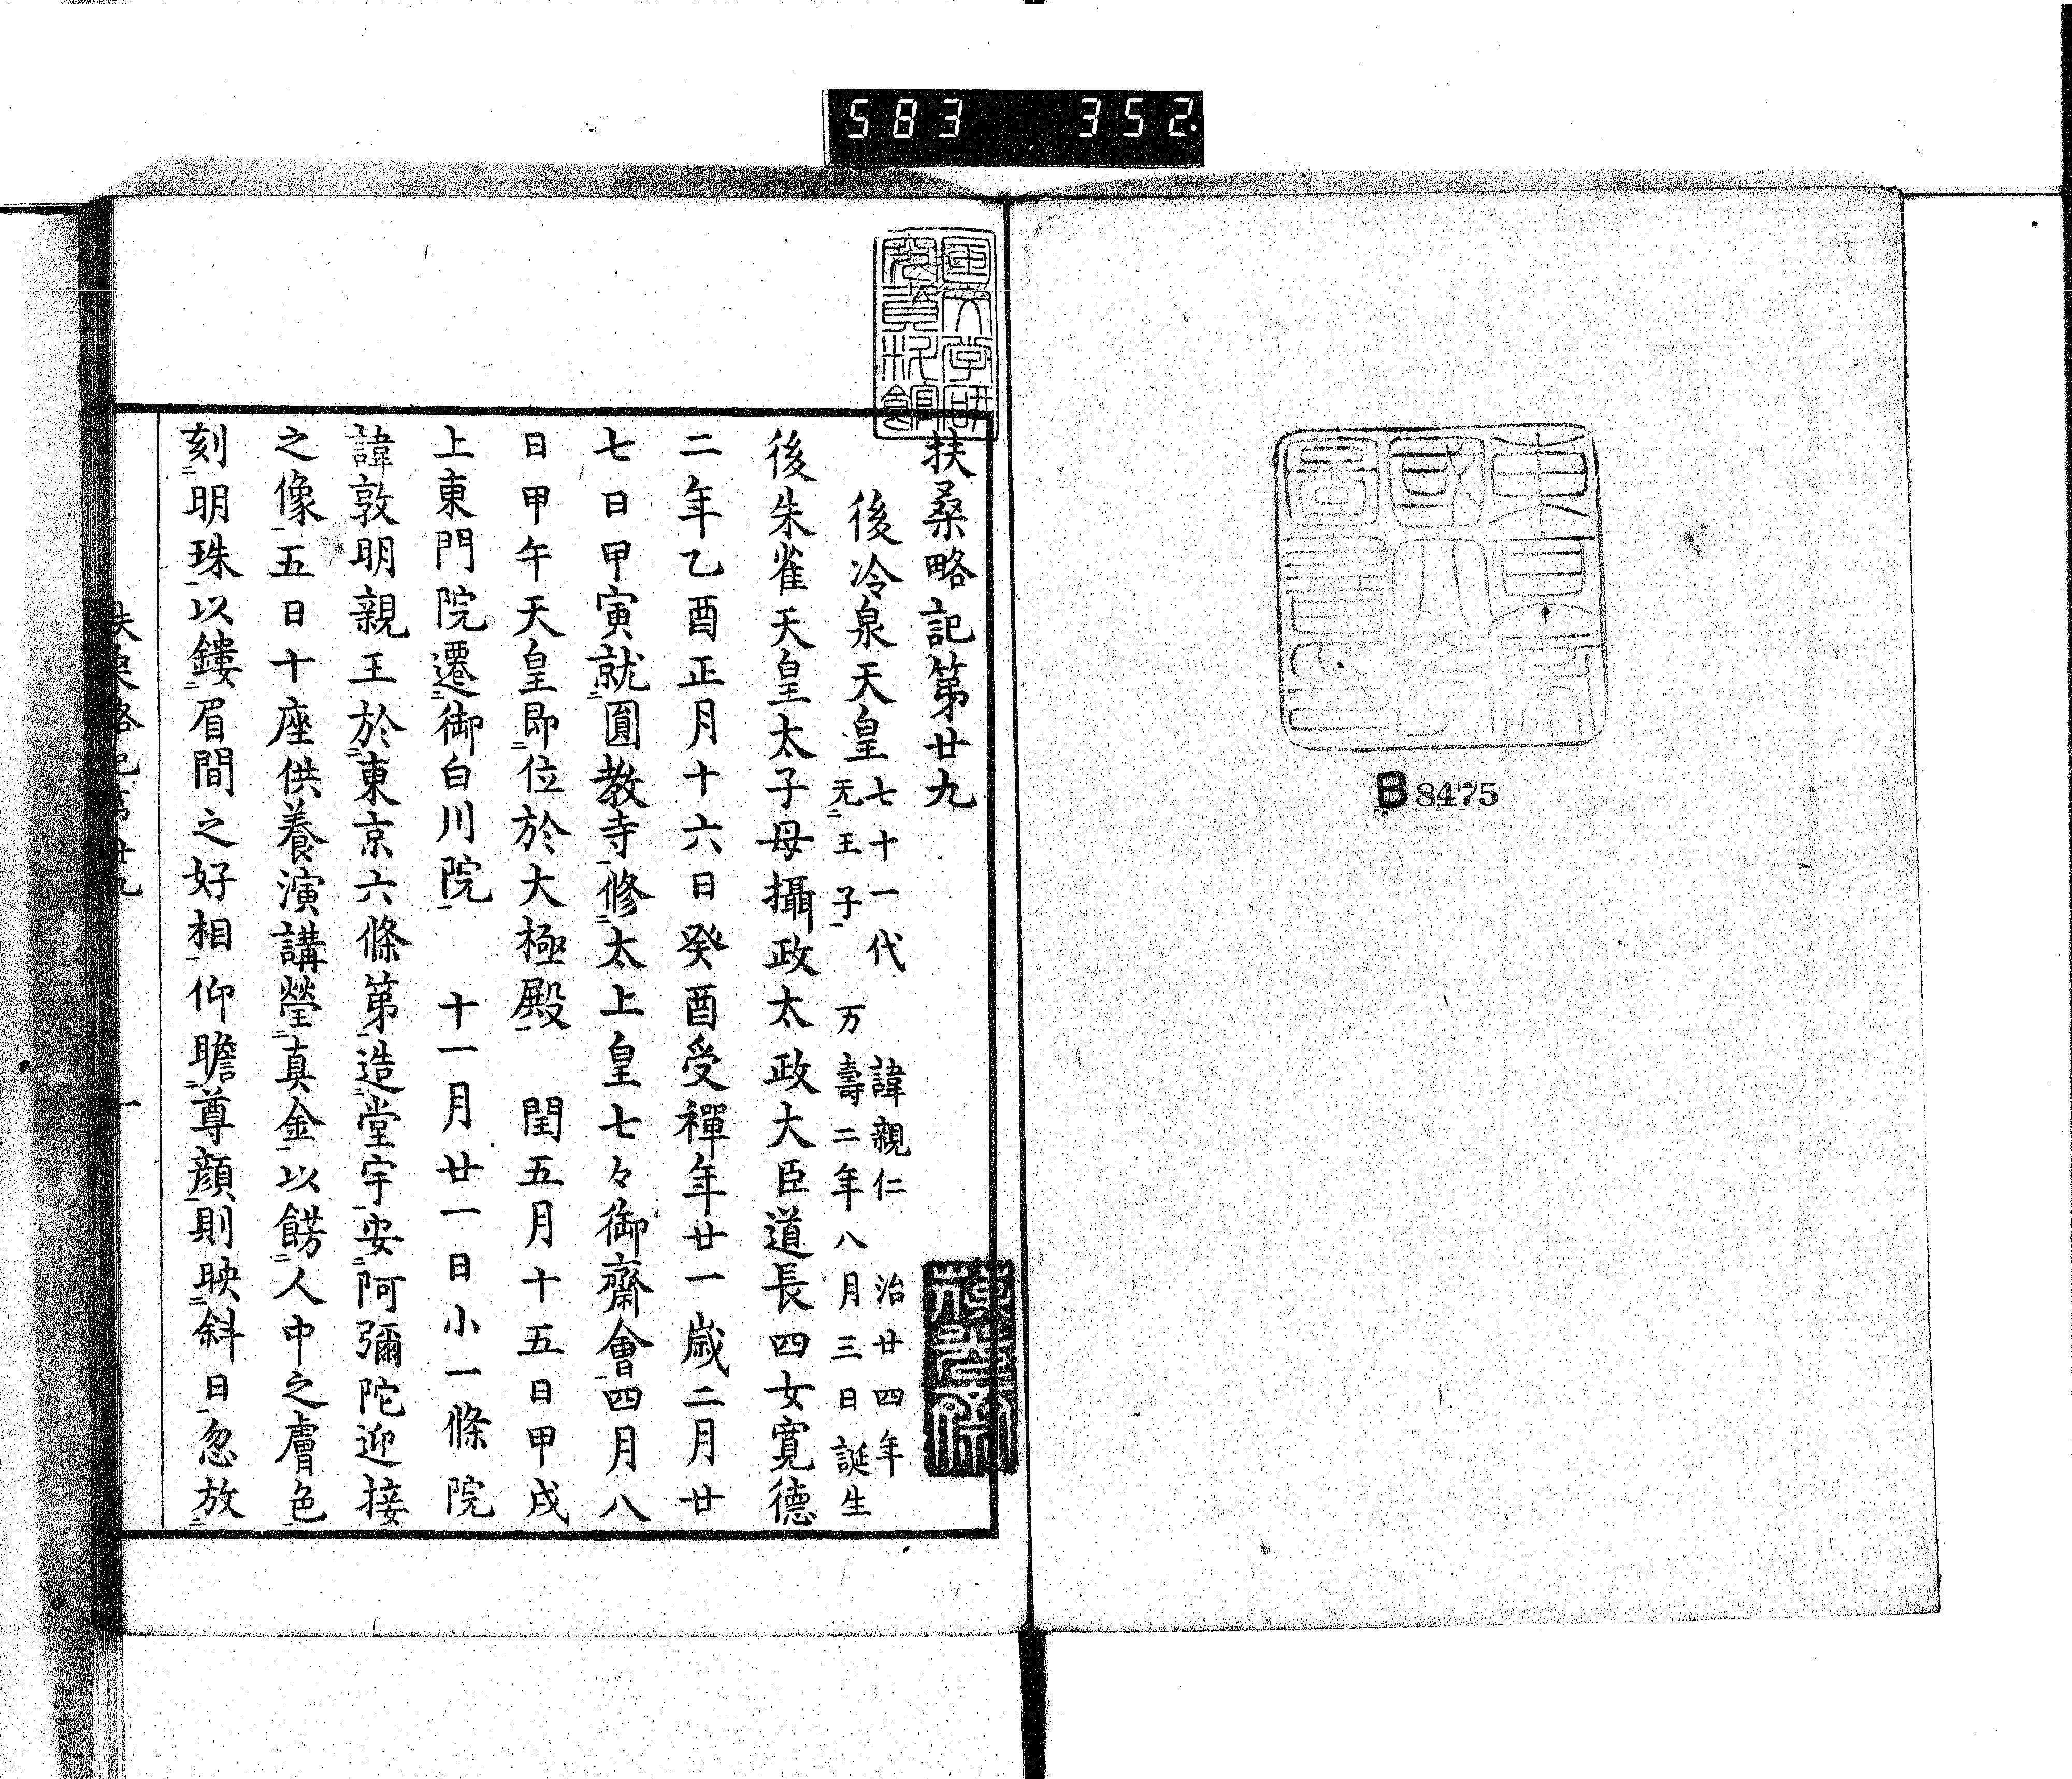 583 352.
東京帝國大學圖書印
B 8475
扶桑略記第廿九
後冷泉天皇 七十一代 諱親仁 治廿四年
无二王子一 万壽二年八月三日誕生
後朱雀天皇太子母攝政太政大臣道長四女寛德
二年乙酉正月十六日癸酉受禪年廿一歳二月廿
七日甲寅就二圓教寺一修二太上皇七々御齋會一四月八
日甲午天皇即二位於大極殿一 閏五月十五日甲戌
上東門院遷二御白川院一 十一月廿一日小一條院
諱敦明親王於二東京六條第一造二堂宇一安二阿彌陀迎接
之像一五日十座供養演講瑩二真金一以餝二人中之膚色一
刻二明珠一以鏤二眉間之好相一仰瞻二尊顔一則映二斜日一忽放二
扶桑略記第廿九 一